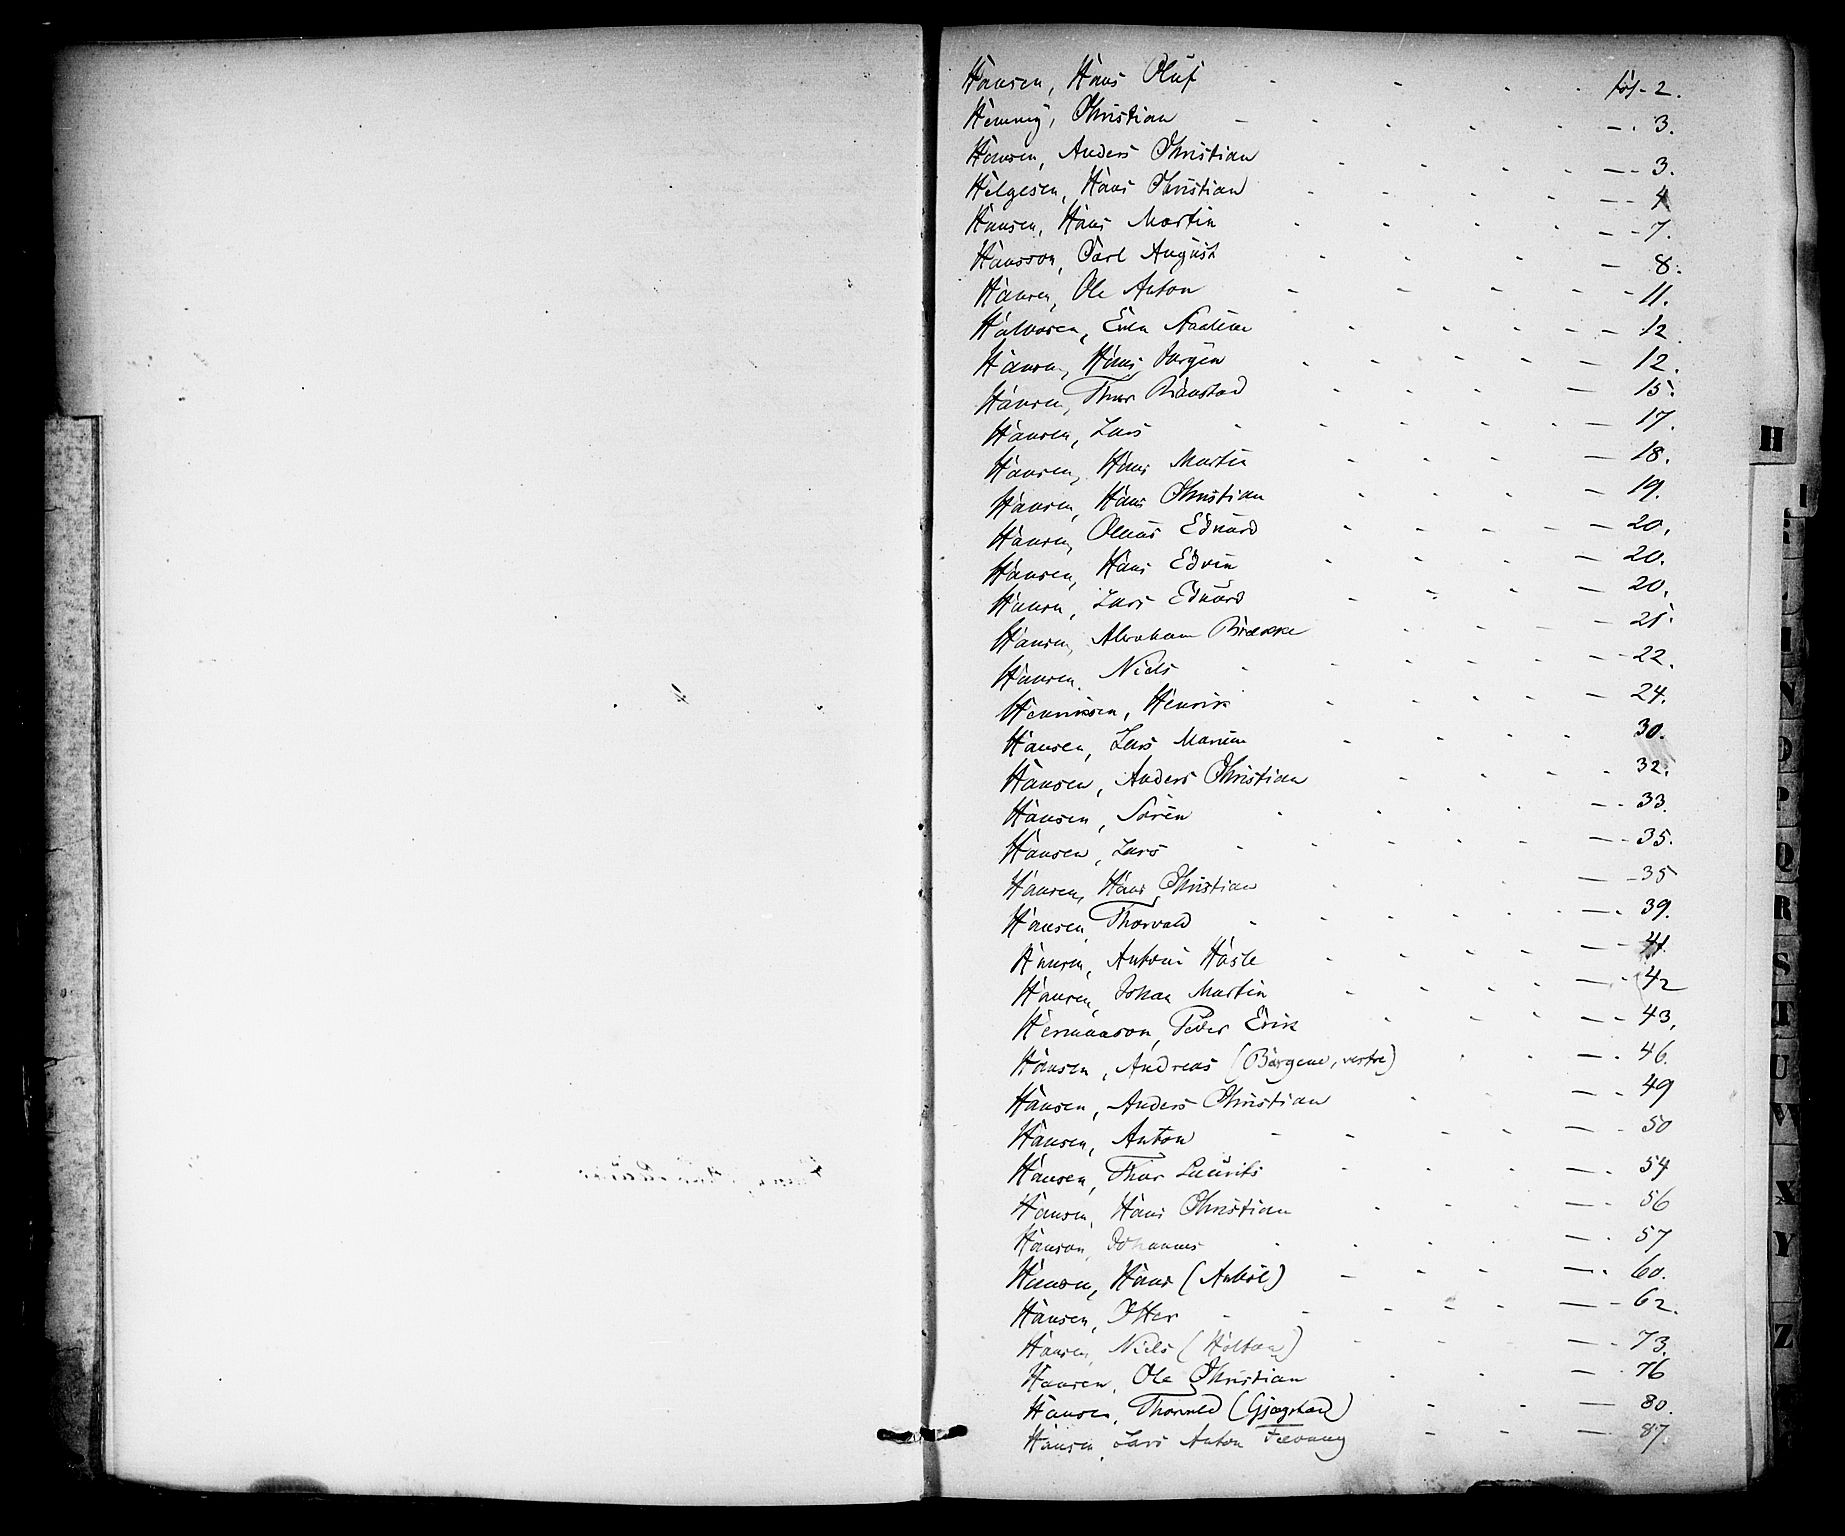 Hansen, Hans Oluf - - - - fol. 2.
Henning, Christian - - - - - — . 3.
Hansen, Anders Christian - - - - — - 3.
Helgesen, Hans Christian - - - - — - 4
Hansen, Hans Martin - - - - — - 7.
Hansson, Carl August - - - — 8.
Hansen, Ole Anton - - - - — - 11.
Halvorsen, Even - - - - — 12.
Hansen, Hans Jørgen - - - - — 12.
Hansen, Thor - - - — 15.
Hansen, Lars - - - - - — 17.
Hansen, Hans Martin - - - — 18.
Hansen, Hans Christian - - - — 19.
Hansen, Olaus Edvard - - - - — 20.
Hansen, Hans Edvin - - - - — 20.
Hansen, Lars Edvard - - - — 20.
Hansen, Abraham Brække - - - — 21.
Hansen, Niels - - - - - — - 22.
Henriksen, Henrik - - - — 24.
Hansen, Lars - - - - 30.
Hansen, Anders Christian - - - - 32.
Hansen, Søren - - - — - 33.
Hansen, Lars - - - - - — - 35.
Hansen, Hans Christian - - - — - 35
Hansen, Thorvald - - - - - — . 39.
Hansen, Hasle - - - - — - 41.
Hansen, Johan Martin - - - - — - 42
Hermansson, Peder Erik - - - — - 43.
Hansen, Andreas (Bårgene, vestre) - - — . 46.
Hansen, Anders Christian - - — - 49
Hansen, Anton - - - - — - 50
Hansen, Thor Laurits - - - — - 54
Hansen, Hans Christian - - - — . 56
Hansen, Johannes - - - - — . 57
Hansen, Hans - - - — . 60.
Hansen, Otter - - - - - — - 62.
Hansen, Niels (Holtan) - - - - — - 73.
Hansen, Ole Christian - - - — - 76
Hansen, Thorvald (Gjøgstad) - - — - 80.
Hansen, Lars Anton - - — - 87.
H
I
N
O
P
Q
R
S
T
U
W
X
Y
Z